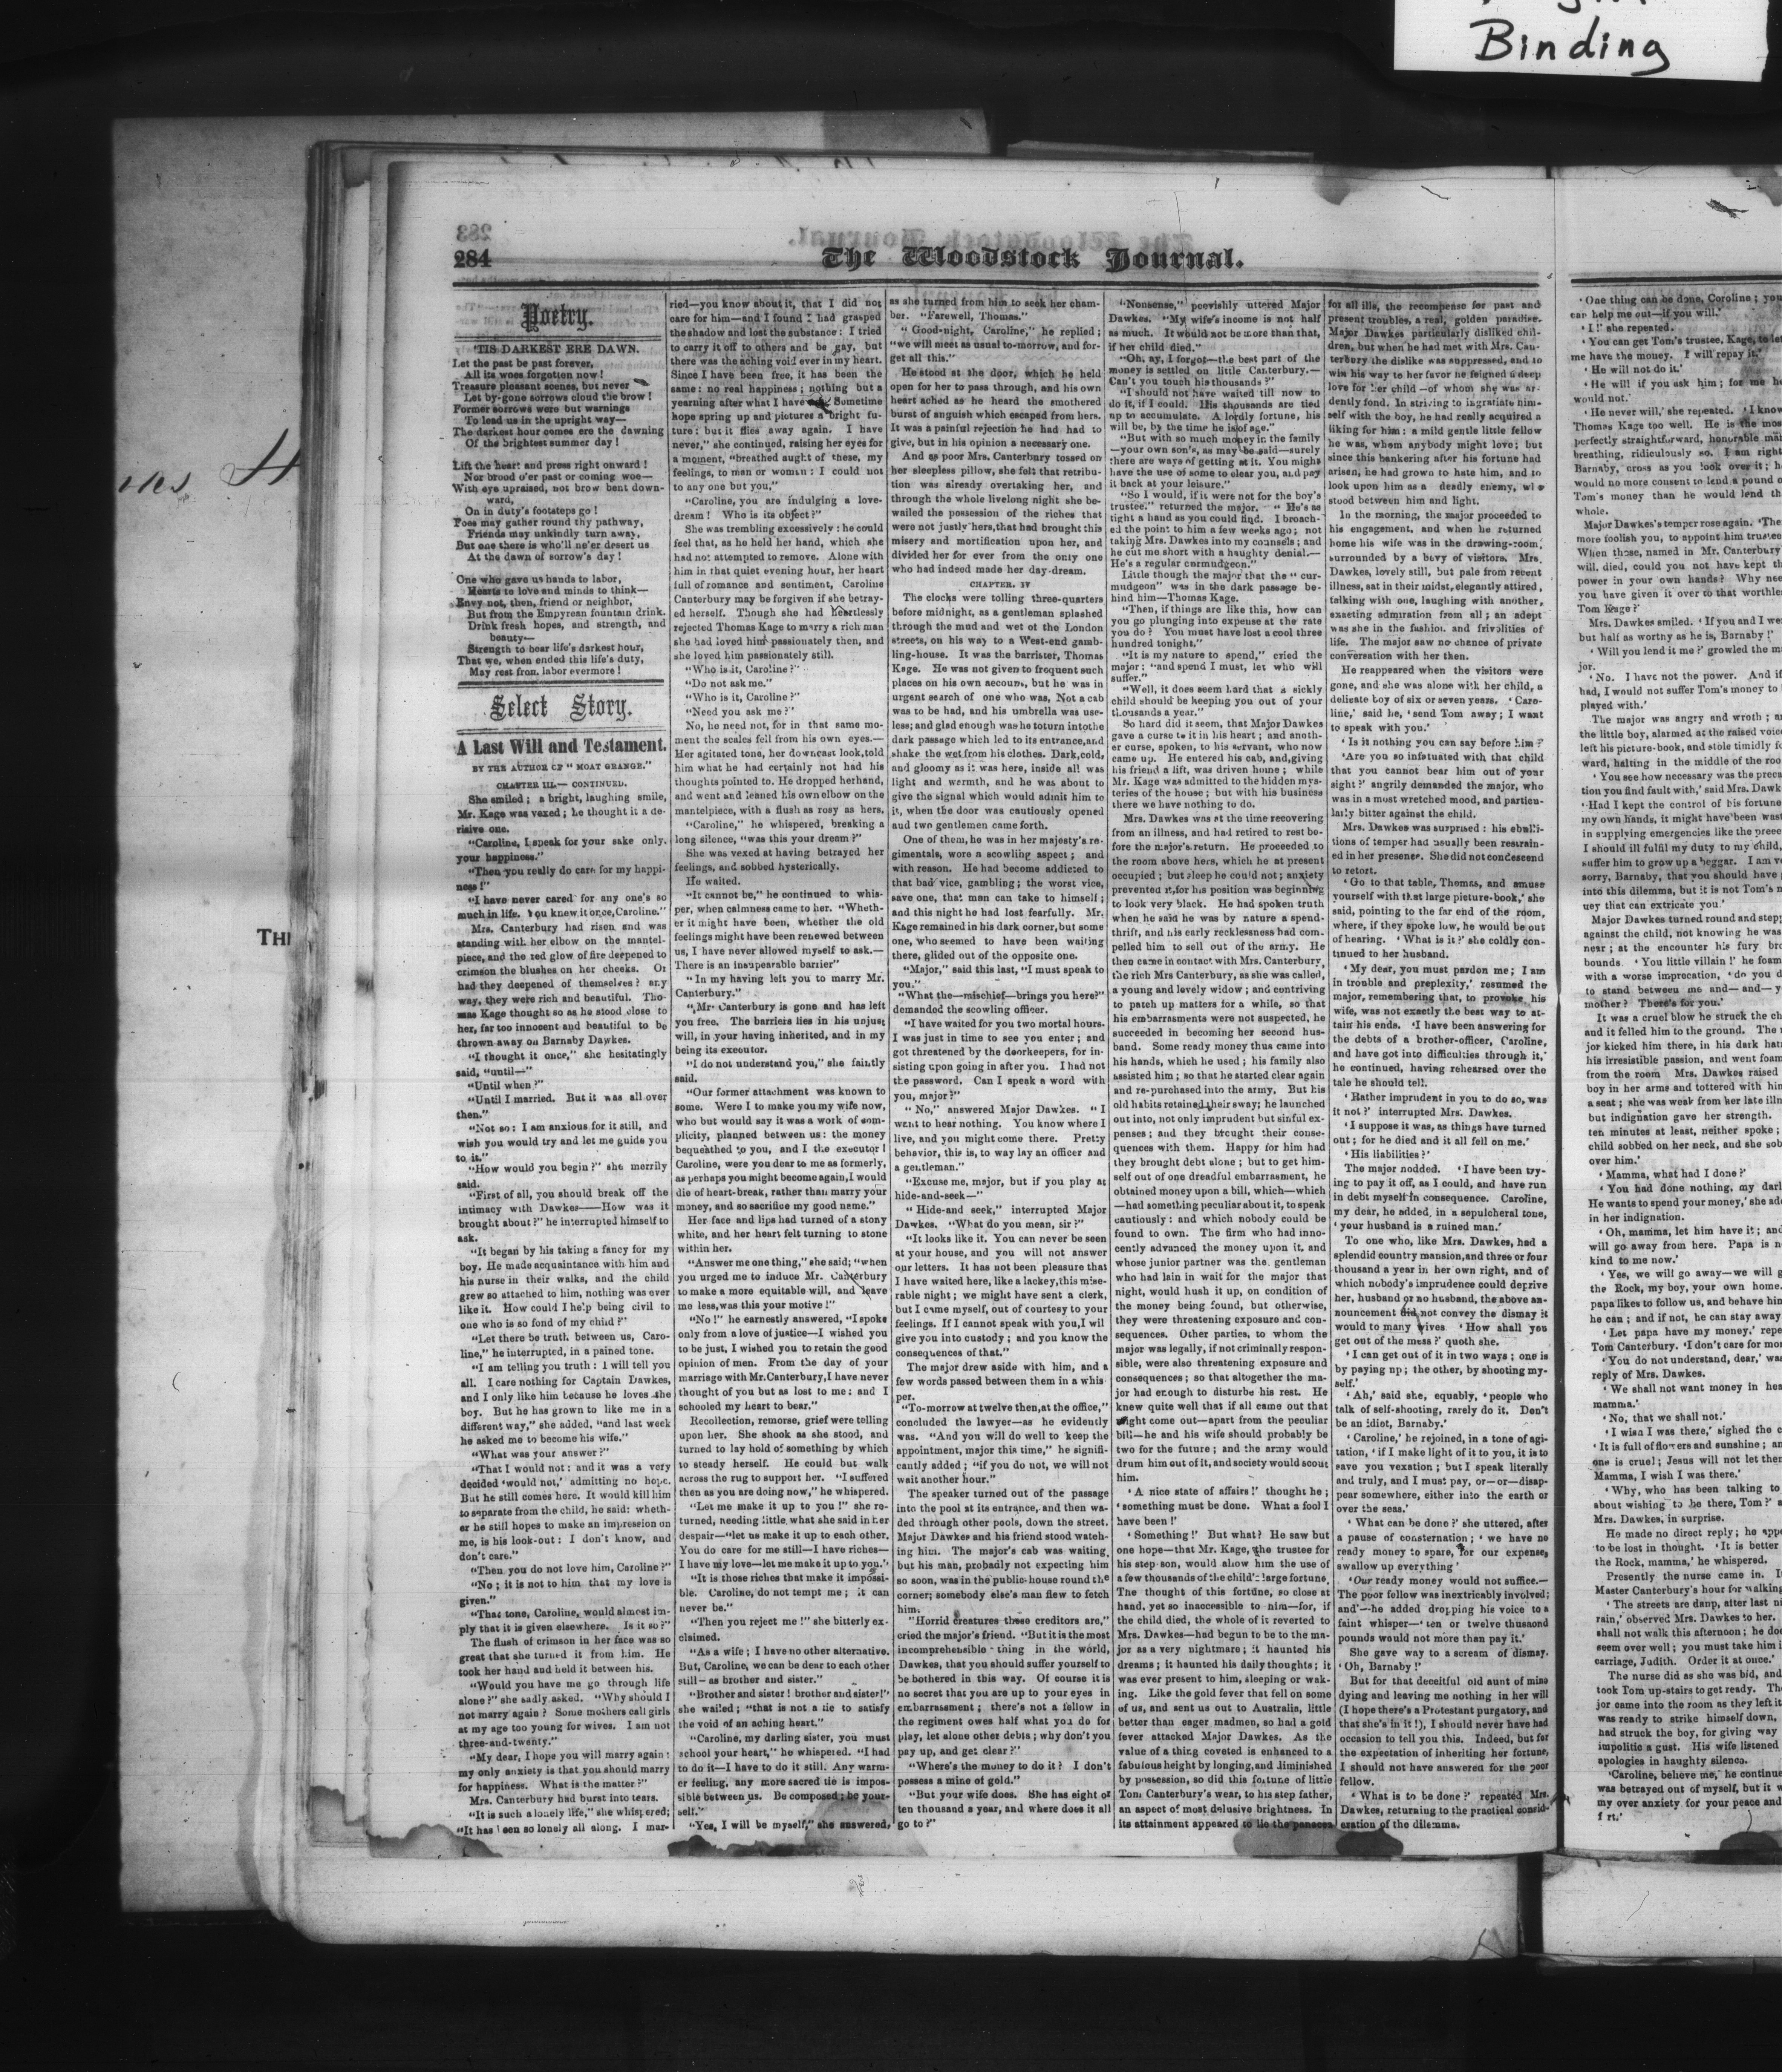 Binding
284
The Woodstock Journal.
Poetry.
'TIS DARKEST ERE DAWN.
Let the past be past forever,
All its woes forgotten now!
Treasure pleasant scenes, but never
Let by-gone sorrows cloud the brow!
Former sorrows were but warnings
To lead us in the upright way—
The darkest hour comes ere the dawning
Of the brightest summer day!
Lift the heart and press right onward!
Nor brood o'er past or coming woe—
With eye upraised, not brow bent down-
ward,
On in duty's footsteps go!
Foes may gather round thy pathway,
Friends may unkindly turn away,
But one there is who'll ne'er desert us
At the dawn of sorrow's day!
One who gave us hands to labor,
Hearts to love and minds to think—
Envy not, then, friend or neighbor,
But from the Empyrean fountain drink.
Drink fresh hopes, and strength, and
beauty—
Strength to bear life's darkest hour,
That we, when ended this life's duty,
May rest from labor evermore!
Select Story.
A Last Will and Testament.
BY THE AUTHOR OF "MOAT GRANGE."
CHAPTER III.— CONTINUED.
She smiled; a bright, laughing smile,
Mr. Kage was vexed; he thought it a de-
risive one.
"Caroline, I speak for your sake only,
your happiness."
"Then you really do care for my happi-
ness!"
"I have never cared for any one's so
much in life. You knew it once, Caroline."
Mrs. Canterbury had risen and was
standing with her elbow on the mantel-
piece, and the red glow of fire deepened to
crimson the blushes on her cheeks. Or
had they deepened of themselves? any
way, they were rich and beautiful. Tho-
mas Kage thought so as he stood close to
her, far too innocent and beautiful to be
thrown away on Barnaby Dawkes.
"I thought it once," she hesitatingly
said, "until—"
"Until when?"
"Until I married. But it was all over
then."
"Not so: I am anxious for it still, and
wish you would try and let me guide you
to it."
"How would you begin?" she merrily
said.
"First of all, you should break off the
intimacy with Dawkes——How was it
brought about?" he interrupted himself to
ask.
"It began by his taking a fancy for my
boy. He made acquaintance with him and
his nurse in their walks, and the child
grew so attached to him, nothing was ever
like it. How could I help being civil to
one who is so fond of my child?"
"Let there be truth between us, Caro-
line," he interrupted, in a pained tone.
"I am telling you truth: I will tell you
all. I care nothing for Captain Dawkes,
and I only like him because he loves the
boy. But he has grown to like me in a
different way," she added, "and last week
he asked me to become his wife."
"What was your answer?"
"That I would not: and it was a very
decided 'would not,' admitting no hope.
But he still comes here. It would kill him
to separate from the child, he said: wheth-
er he still hopes to make an impression on
me, is his look-out: I don't know, and
don't care."
"Then you do not love him, Caroline?"
"No; it is not to him that my love is
given."
"That tone, Caroline, would almost im-
ply that it is given elsewhere. Is it so?"
The flush of crimson in her face was so
great that she turned it from him. He
took her hand and held it between his.
"Would you have me go through life
alone?" she sadly asked. "Why should I
not marry again? Some mothers call girls
at my age too young for wives. I am not
three-and-twenty."
"My dear, I hope you will marry again:
my only anxiety is that you should marry
for happiness. What is the matter?"
Mrs. Canterbury had burst into tears.
"It is such a lonely life," she whispered;
"It has been so lonely all along. I mar-
ried—you know about it, that I did not
care for him—and I found I had grasped
the shadow and lost the substance: I tried
to carry it off to others and be gay, but
there was the aching void ever in my heart.
Since I have been free, it has been the
same: no real happiness; nothing but a
yearning after what I have Sometime
hope spring up and pictures a bright fu-
ture: but it flies away again. I have
never," she continued, raising her eyes for
a moment, "breathed aught of these, my
feelings, to man or woman: I could not
to any one but you."
"Caroline, you are indulging a love-
dream! Who is its object?"
She was trembling excessively: he could
feel that, as he held her hand, which she
had not attempted to remove. Alone with
him in that quiet evening hour, her heart
full of romance and sentiment, Caroline
Canterbury may be forgiven if she betray-
ed herself. Though she had heartlessly
rejected Thomas Kage to marry a rich man
she had loved him passionately then, and
she loved him passionately still.
"Who is it, Caroline?"
"Do not ask me."
"Who is it, Caroline?"
"Need you ask me?"
No, he need not, for in that same mo-
ment the scales fell from his own eyes.—
Her agitated tone, her downcast look, told
him what he had certainly not had his
thoughts pointed to. He dropped her hand,
and went and leaned his own elbow on the
mantelpiece, with a flush as rosy as hers,
"Caroline," he whispered, breaking a
long silence, "was this your dream?"
She was vexed at having betrayed her
feelings, and sobbed hysterically.
He waited.
"It cannot be," he continued to whis-
per, when calmness came to her. "Wheth-
er it might have been, whether the old
feelings might have been renewed between
us, I have never allowed myself to ask.—
There is an insuperable barrier"
"In my having left you to marry Mr.
Canterbury."
"Mr. Canterbury is gone and has left
you free. The barrier lies in his unjust
will, in your having inherited, and in my
being its executor.
"I do not understand you," she faintly
said.
"Our former attachment was known to
some. Were I to make you my wife now,
who but would say it was a work of com-
plicity, planned between us: the money
bequeathed to you, and I the executor!
Caroline, were you dear to me as formerly,
as perhaps you might become again, I would
die of heart-break, rather than marry your
money, and so sacrifice my good name."
Her face and lips had turned of a stony
white, and her heart felt turning to stone
within her.
"Answer me one thing," she said; "when
you urged me to induce Mr. Canterbury
to make a more equitable will, and leave
me less, was this your motive!"
"No!" he earnestly answered, "I spoke
only from a love of justice—I wished you
to be just, I wished you to retain the good
opinion of men. From the day of your
marriage with Mr. Canterbury, I have never
thought of you but as lost to me: and I
schooled my heart to bear."
Recollection, remorse, grief were telling
upon her. She shook as she stood, and
turned to lay hold of something by which
to steady herself. He could but walk
across the rug to support her. "I suffered
then as you are doing now," he whispered.
"Let me make it up to you!" she re-
turned, needing little what she said in her
despair—"let us make it up to each other.
You do care for me still—I have riches—
I have my love—let me make it up to you."
"It is those riches that make it impossi-
ble. Caroline, do not tempt me; it can
never be."
"Then you reject me!" she bitterly ex-
claimed.
"As a wife; I have no other alternative.
But, Caroline, we can be dear to each other
still—as brother and sister."
"Brother and sister! brother and sister!"
she wailed; "that is not a tie to satisfy
the void of an aching heart."
"Caroline, my darling sister, you must
school your heart," he whispered. "I had
to do it—I have to do it still. Any warm-
er feeling, any more sacred tie is impos-
sible between us. Be composed; be your-
self."
"Yes, I will be myself," she answered,
as she turned from him to seek her cham-
ber. "Farewell, Thomas."
"Good-night, Caroline," he replied;
"we will meet as usual to-morrow, and for-
get all this."
He stood at the door, which he held
open for her to pass through, and his own
heart ached as he heard the smothered
burst of anguish which escaped from hers.
It was a painful rejection he had had to
give, but in his opinion a necessary one.
And as poor Mrs. Canterbury tossed on
her sleepless pillow, she felt that retribu-
tion was already overtaking her, and
through the whole livelong night she be-
wailed the possession of the riches that
were not justly hers, that had brought this
misery and mortification upon her, and
divided her for ever from the only one
who had indeed made her day-dream.
CHAPTER. IV
The clocks were tolling three-quarters
before midnight, as a gentleman splashed
through the mud and wet of the London
streets, on his way to a West-end gamb-
ling-house. It was the barrister, Thomas
Kage. He was not given to frequent such
places on his own account, but he was in
urgent search of one who was. Not a cab
was to be had, and his umbrella was use-
less; and glad enough was he to turn into the
dark passage which led to its entrance, and
shake the wet from his clothes. Dark, cold,
and gloomy as it was here, inside all was
light and warmth, and he was about to
give the signal which would admit him to
it, when the door was cautiously opened
and two gentlemen came forth.
One of them, he was in her majesty's re-
gimentals, wore a scowling aspect; and
with reason. He had become addicted to
that bad vice, gambling; the worst vice,
save one, that man can take to himself;
and this night he had lost fearfully. Mr.
Kage remained in his dark corner, but some
one, who seemed to have been waiting
there, glided out of the opposite one.
"Major," said this last, "I must speak to
you."
"What the—mischief—brings you here?"
demanded the scowling officer.
"I have waited for you two mortal hours.
I was just in time to see you enter; and
got threatened by the doorkeepers, for in-
sisting upon going in after you. I had not
the password. Can I speak a word with
you, major?"
"No," answered Major Dawkes. "I
want to hear nothing. You know where I
live, and you might come there. Pretty
behavior, this is, to way lay an officer and
a gentleman."
"Excuse me, major, but if you play at
hide-and-seek—"
"Hide-and seek," interrupted Major
Dawkes. "What do you mean, sir?"
"It looks like it. You can never be seen
at your house, and you will not answer
our letters. It has not been pleasure that
I have waited here, like a lackey, this mise-
rable night; we might have sent a clerk,
but I came myself, out of courtesy to your
feelings. If I cannot speak with you, I wil
give you into custody; and you know the
consequences of that."
The major drew aside with him, and a
few words passed between them in a whis
per.
"To-morrow at twelve then, at the office,"
concluded the lawyer—as he evidently
was. "And you will do well to keep the
appointment, major this time," he signifi-
cantly added; "if you do not, we will not
wait another hour."
The speaker turned out of the passage
into the pool at its entrance, and then wa-
ded through other pools, down the street.
Major Dawkes and his friend stood watch-
ing him. The major's cab was waiting,
but his man, probably not expecting him
so soon, was in the public-house round the
corner; somebody else's man flew to fetch
him.
"Horrid creatures these creditors are,"
cried the major's friend. "But it is the most
incomprehensible thing in the world,
Dawkes, that you should suffer yourself to
be bothered in this way. Of course it is
no secret that you are up to your eyes in
embarrassment; there's not a fellow in
the regiment owes half what you do for
play, let alone other debts; why don't you
pay up, and get clear?"
"Where's the money to do it? I don't
possess a mine of gold."
"But your wife does. She has eight or
ten thousand a year, and where does it all
go to?"
"Nonsense," peevishly uttered Major
Dawkes. "My wife's income is not half
as much. It would not be more than that,
if her child died."
"Oh, ay, I forgot—the best part of the
money is settled on little Canterbury.—
Can't you touch his thousands?"
"I should not have waited till now to
do it, if I could. His thousands are tied
up to accumulate. A lordly fortune, his
will be, by the time he is of age."
"But with so much money in the family
—your own son's, as may be said—surely
there are ways of getting at it. You might
have the use of some to clear you, and pay
it back at your leisure."
"So I would, if it were not for the boy's
trustee," returned the major. "He's as
tight a hand as you could find. I broach-
ed the point to him a few weeks ago; not
taking Mrs. Dawkes into my counsels; and
he cut me short with a haughty denial.—
He's a regular curmudgeon."
Little though the major that the "cur-
mudgeon" was in the dark passage be-
hind him—Thomas Kage.
"Then, if things are like this, how can
you go plunging into expense at the rate
you do? You must have lost a cool three
hundred tonight."
"It is my nature to spend," cried the
major: "and spend I must, let who will
suffer."
"Well, it does seem hard that a sickly
child should be keeping you out of your
thousands a year."
So hard did it seem, that Major Dawkes
gave a curse to it in his heart; and anoth-
er curse, spoken, to his servant, who now
came up. He entered his cab, and, giving
his friend a lift, was driven home; while
Mr. Kage was admitted to the hidden mys-
teries of the house; but with his business
there we have nothing to do.
Mrs. Dawkes was at the time recovering
from an illness, and had retired to rest be-
fore the major's return. He proceeded to
the room above hers, which he at present
occupied; but sleep he could not; anxiety
prevented it, for his position was beginning
to look very black. He had spoken truth
when he said he was by nature a spend-
thrift, and his early recklessness had com-
pelled him to sell out of the army. He
then came in contact with Mrs. Canterbury,
the rich Mrs Canterbury, as she was called,
a young and lovely widow; and contriving
to patch up matters for a while, so that
his embarrasments were not suspected, he
succeeded in becoming her second hus-
band. Some ready money thus came into
his hands, which he used; his family also
assisted him; so that he started clear again
and re-purchased into the army. But his
old habits retained their sway; he launched
out into, not only imprudent but sinful ex-
penses; and they brought their conse-
quences with them. Happy for him had
they brought debt alone; but to get him-
self out of one dreadful embarrasment, he
obtained money upon a bill, which—which
—had something peculiar about it, to speak
cautiously: and which nobody could be
found to own. The firm who had inno-
cently advanced the money upon it, and
whose junior partner was the gentleman
who had lain in wait for the major that
night, would hush it up, on condition of
the money being found, but otherwise,
they were threatening exposure and con-
sequences. Other parties, to whom the
major was legally, if not criminally respon-
sible, were also threatening exposure and
consequences; so that altogether the ma-
jor had enough to disturbe his rest. He
knew quite well that if all came out that
might come out—apart from the peculiar
bill—he and his wife should probably be
two for the future; and the army would
drum him out of it, and society would scout
him.
'A nice state of affairs!' thought he;
'something must be done. What a fool I
have been!'
'Something!' But what? He saw but
one hope—that Mr. Kage, the trustee for
his step son, would allow him the use of
a few thousands of the child's large fortune.
The thought of this fortune, so close at
hand, yet so inaccessible to him—for, if
the child died, the whole of it reverted to
Mrs. Dawkes—had begun to be to the ma-
jor as a very nightmare; it haunted his
dreams; it haunted his daily thoughts; it
was ever present to him, sleeping or wak-
ing. Like the gold fever that fell on some
of us, and sent us out to Australia, little
better than eager madmen, so had a gold
fever attacked Major Dawkes. As the
value of a thing coveted is enhanced to a
fabulous height by longing, and diminished
by possession, so did this fortune of little
Tom Canterbury's wear, to his step father,
an aspect of most delusive brightness. In
its attainment appeared to lie the panacea
for all ills, the recompense for past and
present troubles, a real, golden paradise.
Major Dawkes particularly disliked chil-
dren, but when he had met with Mrs. Can-
terbury the dislike was suppressed, and to
win his way to her favor he feigned a deep
love for her child—of whom she was ar-
dently fond. In striving to ingratiate him-
self with the boy, he had really acquired a
liking for him: a mild gentle little fellow
he was, whom anybody might love; but
since this hankering after his fortune had
arisen, he had grown to hate him, and to
look upon him as a deadly enemy, who
stood between him and light.
In the morning, the major proceeded to
his engagement, and when he returned
home his wife was in the drawing-room,
surrounded by a bevy of visitors. Mrs.
Dawkes, lovely still, but pale from recent
illness, sat in their midst, elegantly attired,
talking with one, laughing with another,
exacting admiration from all; an adept
was she in the fashion and frivolities of
life. The major saw no chance of private
conversation with her then.
He reappeared when the visitors were
gone, and she was alone with her child, a
delicate boy of six or seven years. 'Caro-
line,' said he, 'send Tom away; I want
to speak with you.'
'Is it nothing you can say before him?'
'Are you so infatuated with that child
that you cannot bear him out of your
sight?' angrily demanded the major, who
was in a most wretched mood, and particu-
larly bitter against the child.
Mrs. Dawkes was surprised: his ebulli-
tions of temper had usually been restrain-
ed in her presence. She did not condescend
to retort.
'Go to that table, Thomas, and amuse
yourself with that large picture-book,' she
said, pointing to the far end of the room,
where, if they spoke low, he would be out
of hearing. 'What is it?' she coldly con-
tinued to her husband.
'My dear, you must pardon me; I am
in trouble and preplexity,' resumed the
major, remembering that, to provoke his
wife, was not exactly the best way to at-
tain his ends. 'I have been answering for
the debts of a brother-officer, Caroline,
and have got into difficulties through it,'
he continued, having rehearsed over the
tale he should tell.
'Rather imprudent in you to do so, was
it not?' interrupted Mrs. Dawkes.
'I suppose it was, as things have turned
out; for he died and it all fell on me.'
'His liabilities?'
The major nodded. 'I have been try-
ing to pay it off, as I could, and have run
in debt myself in consequence. Caroline,
my dear, he added, in a sepulchral tone,
'your husband is a ruined man.'
To one who, like Mrs. Dawkes, had a
splendid country mansion, and three or four
thousand a year in her own right, and of
which nobody's imprudence could deprive
her, husband or no husband, the above an-
nouncement did not convey the dismay it
would to many wives. 'How shall you
get out of the mess?' quoth she.
'I can get out of it in two ways; one is
by paying up; the other, by shooting my-
self.'
'Ah,' said she, equably, 'people who
talk of self-shooting, rarely do it. Don't
be an idiot, Barnaby.'
'Caroline,' he rejoined, in a tone of agi-
tation, 'if I make light of it to you, it is to
save you vexation; but I speak literally
and truly, and I must pay, or—or—disap-
pear somewhere, either into the earth or
over the seas.'
'What can be done?' she uttered, after
a pause of consternation; 'we have no
ready money to spare, for our expenses
swallow up everything'
'Our ready money would not suffice.—
The poor fellow was inextricably involved;
and'—he added dropping his voice to a
faint whisper—'ten or twelve thusaond
pounds would not more than pay it.'
She gave way to a scream of dismay.
'Oh, Barnaby!'
But for that deceitful old aunt of mine
dying and leaving me nothing in her will
(I hope there's a Protestant purgatory, and
that she's in it!), I should never have had
occasion to tell you this. Indeed, but for
the expectation of inheriting her fortune,
I should not have answered for the poor
fellow.
'What is to be done?' repeated Mrs.
Dawkes, returning to the practical consid-
eration of the dilemma.
'One thing can be done, Coroline; you
can help me out—if you will.'
'I!' she repeated.
'You can get Tom's trustee, Kage, to let
me have the money. I will repay it.'
'He will not do it.'
'He will if you ask him; for me he
would not.'
'He never will,' she repeated. 'I know
Thomas Kage too well. He is the most
perfectly straightforward, honorable man
breathing, ridiculously so. I am right
Barnaby, cross as you look over it; h
would no more consent to lend a pound o
Tom's money than he would lend th
whole.
Major Dawkes's temper rose again. 'The
more foolish you, to appoint him trustee
When those, named in Mr. Canterbury'
will, died, could you not have kept th
power in your own hands? Why nee
you have given it over to that worthles
Tom Kage?'
Mrs. Dawkes smiled. 'If you and I we
but half as worthy as he is, Barnaby!'
'Will you lend it me?' growled the m
jor.
'No. I have not the power. And if
had, I would not suffer Tom's money to
played with.'
The major was angry and wroth; an
the little boy, alarmed at the raised voice
left his picture-book, and stole timidly fo
ward, halting in the middle of the roo
'You see how necessary was the precau
tion you find fault with,' said Mrs. Dawk
'Had I kept the control of his fortune
my own hands, it might have been wast
in supplying emergencies like the prese
I should ill fulfil my duty to my child,
suffer him to grow up a beggar. I am ve
sorry, Barnaby, that you should have
into this dilemma, but it is not Tom's m
ney that can extricate you.'
Major Dawkes turned round and step
against the child, not knowing he was
near; at the encounter his fury bro
bounds. 'You little villain!' he foam
with a worse imprecation, 'do you d
to stand between me and—and—y
mother? There's for you.'
It was a cruel blow he struck the ch
and it felled him to the ground. The
jor kicked him there, in his dark hat
his irresistible passion, and went foam
from the room Mrs. Dawkes raised
boy in her arms and tottered with him
a seat; she was weak from her late illn
but indignation gave her strength.
ten minutes at least, neither spoke;
child sobbed on her neck, and she sob
over him.'
'Mamma, what had I done?'
'You had done nothing, my darl
He wants to spend your money,' she add
in her indignation.
'Oh, mamma, let him have it; and
will go away from here. Papa is n
kind to me now.'
'Yes, we will go away—we will g
the Rock, my boy, your own home.
papa likes to follow us, and behave him
he can; and if not, he can stay away
'Let papa have my money,' repe
Tom Canterbury. 'I don't care for mon
'You do not understand, dear,' wa
reply of Mrs. Dawkes.
'We shall not want money in hea
mamma.'
'No, that we shall not.'
'I wish I was there,' sighed the c
'It is full of flowers and sunshine; an
one is cruel; Jesus will not let them
Mamma, I wish I was there.'
'Why, who has been talking to
about wishing to be there, Tom?' a
Mrs. Dawkes, in surprise.
He made no direct reply; he appe
to be lost in thought. 'It is better
the Rock, mamma,' he whispered.
Presently the nurse came in. I
Master Canterbury's hour for walking
'The streets are damp, after last ni
rain,' observed Mrs. Dawkes to her.
shall not walk this afternoon; he doe
seem over well; you must take him i
carriage, Judith. Order it at once.'
The nurse did as she was bid, and
took Tom up-stairs to get ready. The
jor came into the room as they left it
was ready to strike himself down,
had struck the boy, for giving way
impolitic a gust. His wife listened
apologies in haughty silence.
'Caroline, believe me,' he continue
was betrayed out of myself, but it w
my over anxiety for your peace and
f rt.'